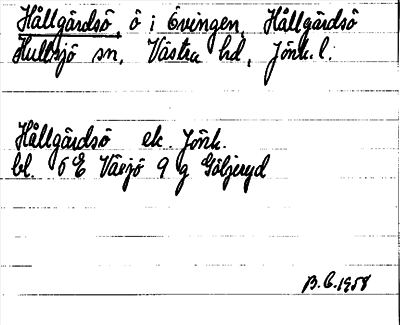 Hållgårdsö, ö i Övingen, Hållgårdsö
Hultsjö sn, Västra hd, Jönk. l.
Hållgårdsö ek. Jönk.
bl. 5 E Växjö 9 g Göljeryd
B.C. 1958